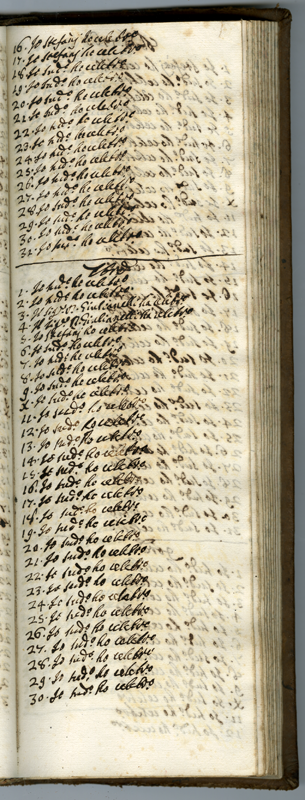 16. Io Stefanj ho celebro
17. Io Stefanj ho celebro
18. Io sud.º ho celebro
19. Io sud.º ho celebro
20. Io sud.º ho celebro
21. Io sud.º ho celebro
22. Io sud.º ho celebro
23. Io sud.º ho celebro
24. Io sud.º ho celebro
25. Io sud.º ho celebro
26. Io sud.º ho celebro
27. Io sud.º ho celebro
28. Io sud.º ho celebro
29. Io sud.º ho celebro
30. Io sud.º ho celebro
31. Io sud.º ho celebro
1. Io sud.º ho celebro
2. Io sud.º ho celebro
3. Giulianelli ha celebro
4. Giulianelli ha celebro
5. Io Stefanj ho celebro
6. Io sud.º ho celebro
7. Io sud.º ho celebro
8. Io sud.º ho celebro
9. Io sud.º ho celebro
X. Io sud.º ho celebro
11. Io sud.º ho celebro
12. Io sud.º ho celebro
13. Io sud.º ho celebro
14. Io sud.º ho celebro
15. Io sud.º ho celebro
16. Io sud.º ho celebro
17. Io sud.º ho celebro
18. Io sud.º ho celebro
19. Io sud.º ho celebro
20. Io sud.º ho celebro
21. Io sud.º ho celebro
22. Io sud.º ho celebro
23. Io sud.º ho celebro
24. Io sud.º ho celebro
25. Io sud.º ho celebro
26. Io sud.º ho celebro
27. Io sud.º ho celebro
28. Io sud.º ho celebro
29. Io sud.º ho celebro
30. Io sud.º ho celebro